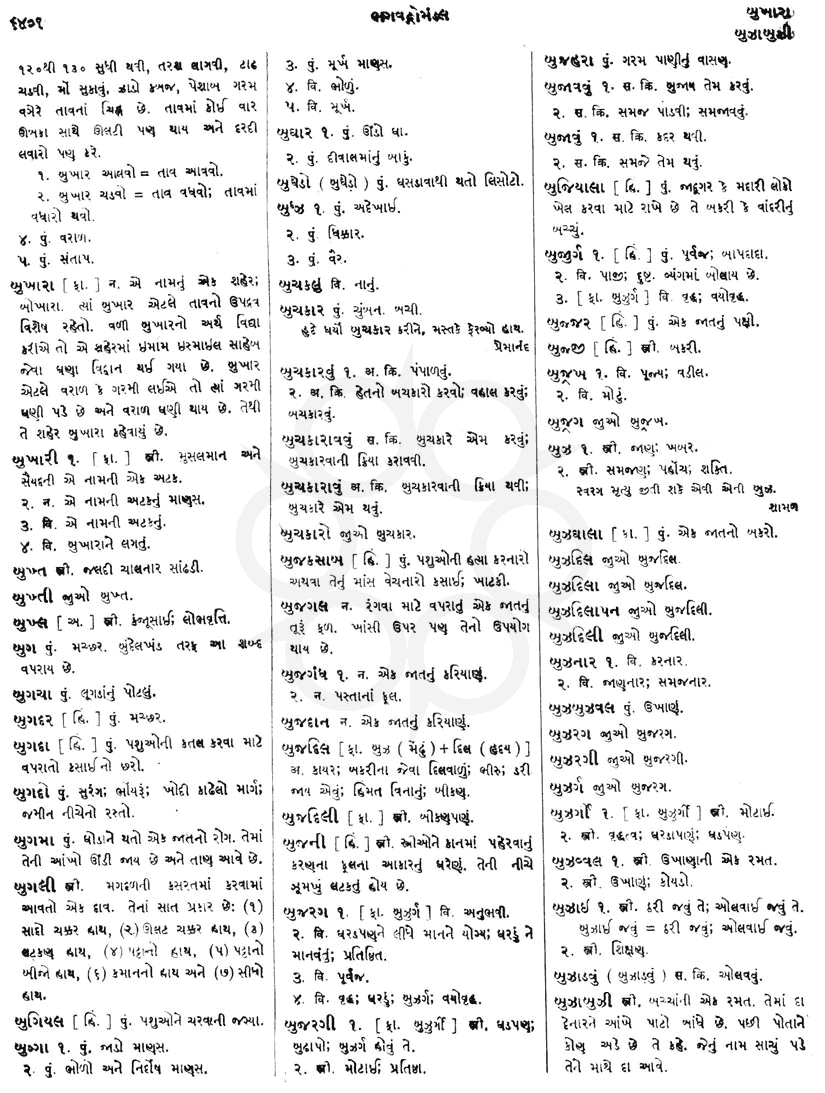 ૬૪૭૧
ભગવદ્ગોમંડલ
બુખારા
બુઝાબુઝી
૧૨૦થી ૧૩૦ સુધી થવી, તરસ લાગવી, ટાઢ
ચડવી, મોં સુકાવું, ઝાડો કબજ, પેશાબ ગરમ
વગેરે તાવનાં ચિહ્ન છે. તાવમાં કોઈ વાર
ઊબકા સાથે ઊલટી પણ થાય અને દરદી
લવારો પણ કરે.
૧. બુખાર આલવો = તાવ આવવો.
૨. બુખાર ચડવો = તાવ વધવો; તાવમાં
વધારો થવો.
૪. પું. વરાળ.
૫. પું. સંતાપ.
બુખારા [ ફા. ] ન. એ નામનું એક શહેર;
બોખારા. ત્યાં બુખાર એટલે તાવનો ઉપદ્રવ
વિશેષ રહેતો. વળી બુખારનો અર્થ વિદ્યા
કરીએ તો એ શહેરમાં ઇમામ ઇસ્માઇલ સાહેબ
જેવા ઘણા વિદ્વાન થઈ ગયા છે. બુખાર
એટલે વરાળ કે ગરમી લઈએ તો ત્યાં ગરમી
ઘણી પડે છે અને વરાળ ઘણી થાય છે. તેથી
તે શહેર બુખારા કહેવાયું છે.
બુખારી ૧. [ ફા. ] સ્ત્રી. મુસલમાન અને
સૈયદની એ નામની એક અટક.
૨. ન. એ નામની અટકનું માણસ.
૩. વિ. એ નામની અટકનું.
૪. વિ. બુખારાને લગતું.
બુખ્ત સ્ત્રી. જલદી ચાલનાર સાંઢડી.
બુખ્તી જુઓ બુખ્ત.
બુખ્લ [ અ. ] સ્ત્રી. કંજૂસાઈ; લોભવૃત્તિ.
બુગ પું. મચ્છર. બુંદેલખંડ તરફ આ શબ્દ
વપરાય છે.
બુગચા પું. લૂગડાંનું પોટલું.
બુગદર [ હિં. ] પું. મચ્છર.
બુગદા [ હિં. ] પું. પશુઓની કતલ કરવા માટે
વપરાતો કસાઈનો છરો.
બુગદો પું. સુરંગ; ભોંયરૂં; ખોદી કાઢેલો માર્ગ;
જમીન નીચેનો રસ્તો.
બુગમા પું. ઘોડાને થતો એક જાતનો રોગ. તેમાં
તેની આંખો ઊંડી જાય છે અને તાણ આવે છે.
બુગલી સ્ત્રી. મગદળની કસરતમાં કરવામાં
આવતો એક દાવ. તેના સાત પ્રકાર છે: (૧)
સાદો ચક્કર હાથ, (૨) ઊલટ ચક્કર હાથ, (૩)
લટકણ હાથ, (૪) પટ્ટાનો હાથ, (૫) પટ્ટાનો
બીજો હાથ, (૬) કમાનનો હાથ અને (૭) સીધો
હાથ.
બુગિયલ [ હિં. ] પું. પશુઓને ચરવાની જગ્યા.
બુગ્ગા ૧. પું. જાડો માણસ.
૨. પું. ભોળો અને નિર્દોષ માણસ.
૩. પું. મૂર્ખ માણસ.
૪. વિ. ભોળું.
૫. વિ. મૂર્ખ.
બુઘાર ૧. પું. ઊંડો ઘા.
૨. પું. દીવાલમાંનું બાકું.
બુઘેડો ( બુઘૅડો ) પું. ઘસડાવાથી થતો લિસોટો.
બુઘ્ઝ ૧. પું. અદેખાઈ.
૨. પું. ધિક્કાર.
૩. પું. વૈર.
બુચકલું વિ. નાનું.
બુચકાર પું. ચુંબન. બચી.
હૃદે ધર્યો બુચકાર કરીને, મસ્તકે ફેરવ્યો હાથ.
પ્રેમાનંદ
બુચકારવું ૧. અ. ક્રિ. પંપાળવું.
૨. અ. ક્રિ. હેતનો બચકારો કરવો; વહાલ કરવું;
બચકારવું.
બુચકારાવવું સ. ક્રિ. બુચકારે એમ કરવું;
બુચકારવાની ક્રિયા કરાવવી.
બુચકારાવું અ. ક્રિ. બુચકારવાની ક્રિયા થવી;
બુચકારે એમ થવું.
બુચકારો જુઓ બુચકાર.
બુજકસાબ [ હિં. ] પું. પશુઓની હત્યા કરનારો
અથવા તેનું માંસ વેચનારો કસાઈ; ખાટકી.
બુજગલ ન. રંગવા માટે વપરાતું એક જાતનું
તૂરૂં ફળ. ખાંસી ઉપર પણ તેનો ઉપયોગ
થાય છે.
બુજગંધ ૧. ન. એક જાતનું કરિયાણું.
૨. ન. પસ્તાનાં ફૂલ.
બુજદાન ન. એક જાતનું કરિયાણું.
બુજદિલ [ ફા. બુઝ ( મેંઢું ) + દિલ ( હૃદય ) ]
અ. કાયર; બકરીના જેવા દિલવાળું; ભીરુ; ડરી
જાય એવું; હિંમત વિનાનું; બીકણ.
બુજદિલી [ ફા. ] સ્ત્રી. બીકણપણું.
બુજની [ હિં. ] સ્ત્રી. સ્ત્રીઓને કાનમાં પહેરવાનું
કરણના ફૂલના આકારનું ઘરેણું. તેની નીચે
ઝૂમખું લટકતું હોય છે.
બુજરગ ૧. [ ફા. બુઝુર્ગ ] વિ. અનુભવી.
૨. વિ. ઘરડપણને લીધે માનને યોગ્ય; ઘરડું ને
માનવંતું; પ્રતિષ્ઠિત.
૩. વિ. પૂર્વજ.
૪. વિ. વૃદ્ધ; ઘરડું; બુઝર્ગ; વયોવૃદ્ધ.
બુજરગી ૧. [ ફા. બુઝુર્ગી ] સ્ત્રી. ઘડપણ;
બુઢાપો; બુઝર્ગ હોવું તે.
૨. સ્ત્રી. મોટાઈ; પ્રતિષ્ઠા.
બુજહરા પું. ગરમ પાણીનું વાસણ.
બુજાવવું ૧. સ. ક્રિ. બુજાય તેમ કરવું.
૨. સ. ક્રિ. સમજ પાડવી; સમજાવવું.
બુજાવું ૧. સ. ક્રિ. કદર થવી.
૨. સ. ક્રિ. સમજે તેમ થવું.
બુજિયાલા [ હિં. ] પું. જાદૂગર કે મદારી લોકો
ખેલ કરવા માટે રાખે છે તે બકરી કે વાંદરીનું
બચ્ચું.
બુજુર્ગ ૧. [ હિં. ] પું. પૂર્વજ; બાપદાદા.
૨. વિ. પાજી; દુષ્ટ. વ્યંગમાં બોલાય છે.
૩. [ ફા. બુઝુર્ગ ] વિ. વૃદ્ધ; વયોવૃદ્ધ.
બુજ્જર [ હિં. ] પું. એક જાતનું પક્ષી.
બુજ્જી [ હિં. ] સ્ત્રી. બકરી.
બુજ્રૂખ ૧. વિ. પૂજ્ય; વડીલ.
૨. વિ. મોટું.
બુજ્રૂગ જુઓ બુજ્રૂખ.
બુઝ ૧. સ્ત્રી. જાણ; ખબર.
૨. સ્ત્રી. સમજણ; પહોંચ; શક્તિ.
સ્વરગ મૃત્યુ જીતી શકે એવી એની બુઝ.
શામળ
બુઝઘાલા [ ફા. ] પું. એક જાતનો બકરો.
બુઝદિલ જુઓ બુજદિલ.
બુઝદિલા જુઓ બુજદિલ.
બુઝદિલાપન જુઓ બુજદિલી.
બુઝદિલી જુઓ બુજદિલી.
બુઝનાર ૧. વિ. કરનાર.
૨. વિ. જાણનાર; સમજનાર.
બુઝબુઝવલ પું. ઉખાણું.
બુઝરગ જુઓ બુજરગ.
બુઝરગી જુઓ બુજરગી.
બુઝર્ગ જુઓ બુજરગ.
બુઝર્ગી ૧. [ ફા. બુઝુર્ગી ] સ્ત્રી. મોટાઈ.
૨. સ્ત્રી. વૃદ્ધત્વ; ઘરડાપણું; ઘડપણ.
બુઝવ્વલ ૧. સ્ત્રી. ઉખાણાની એક રમત.
૨. સ્ત્રી. ઉખાણું; કોયડો.
બુઝાઈ ૧. સ્ત્રી. ઠરી જવું તે; ઓલવાઈ જવું તે.
બુઝાઈ જવું = ઠરી જવું; ઓલવાઈ જવું.
૨. સ્ત્રી. શિક્ષણ.
બુઝાડવું ( બુઝાડવું ) સ. ક્રિ. ઓલવવું.
બુઝાબુઝી સ્ત્રી. બચ્ચાંની એક રમત. તેમાં દા
દેનારને આંખે પાટો બાંધે છે. પછી પોતાને
કોણ અડે છે તે કહે. જેનું નામ સાચું પડે
તેને માથે દા આવે.